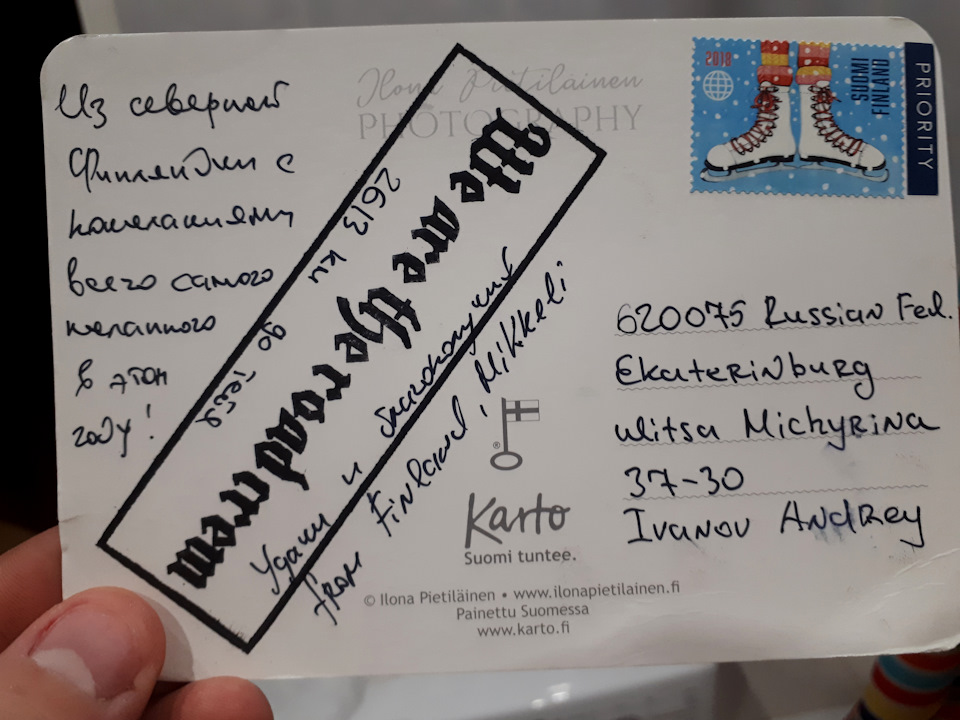 Из северной
Финляндии с
пожеланиями
всего самого
желанного
в этом
году!
Ilona Pietiläinen
PHOTOGRAPHY
2613 км до тебя
We are the road crew
Удачи и благополучия
from Finland, Mikkeli
2018
SUOMI
FINLAND
PRIORITY
620075 Russian Fed.
Ekaterinburg
ulitsa Michyrina
37-30
Ivanov Andrey
®
Karto
Suomi tuntee.
© Ilona Pietiläinen • www.ilonapietilainen.fi
Painettu Suomessa
www.karto.fi